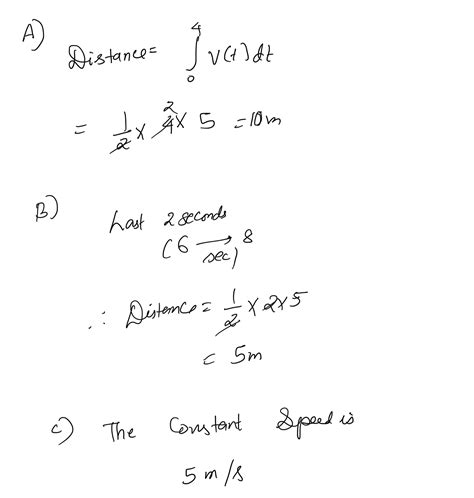 A)
Distance = ∫₀⁴ v(t) dt
= 1/2 x 4 2 x 5 = 10m
B)
Last 2 seconds
(6 → 8
sec)
∴ Distance = 1/2 x 2 x 5
= 5m
c) The Constant Speed is
5 m/s